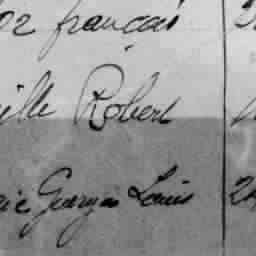 or français
ille Robert
ic Georges Louis 24